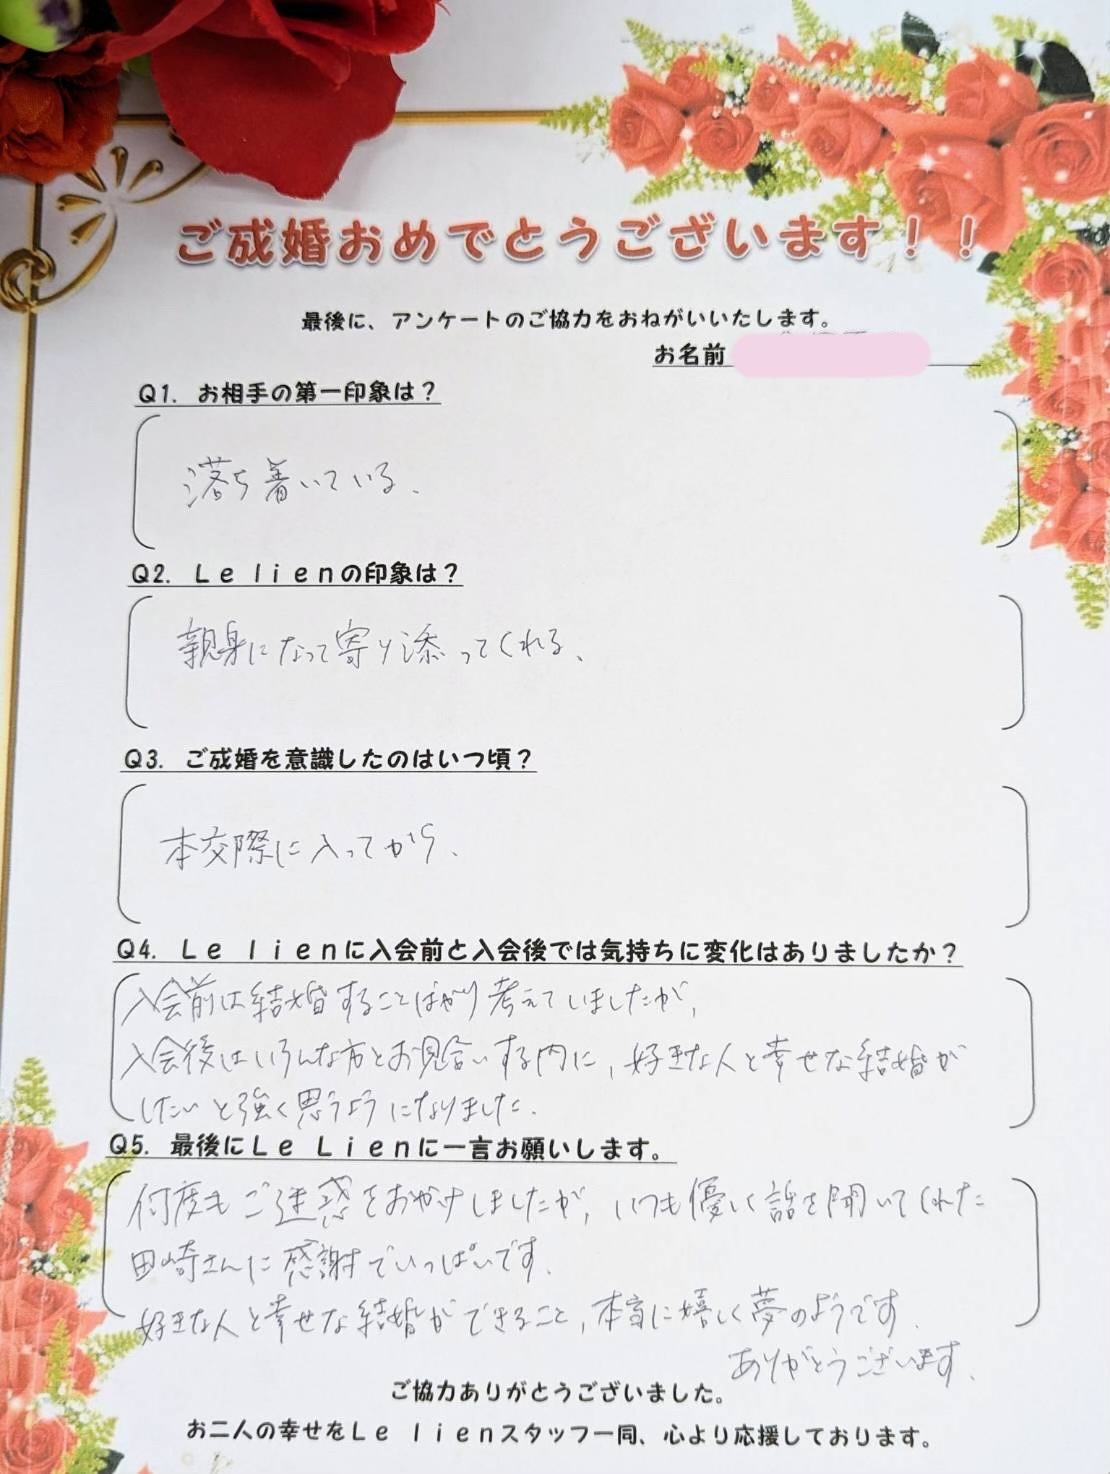 ご成婚おめでとうございます！！
最後に、アンケートのご協力をおねがいいたします。
お名前
Q1. お相手の第一印象は？
落ち着いている、
Q2. Le lienの印象は？
親身になって寄り添ってくれる、
Q3. ご成婚を意識したのはいつ頃？
本交際に入ってから、
Q4. Le lienに入会前と入会後では気持ちに変化はありましたか？
入会前は結婚することばかり考えていましたが、
入会後はいろんな方とお見合いする内に、好きな人と幸せな結婚が
したいと強く思うようになりました。
Q5. 最後にLe Lienに一言お願いします。
何度もご迷惑をおかけしましたが、いつも優しく話を聞いてくれた
田崎さんに感謝でいっぱいです。
好きな人と幸せな結婚ができること、本当に嬉しく夢のようです。
ありがとうございます。
ご協力ありがとうございました。
お二人の幸せをLe lienスタッフ一同、心より応援しております。